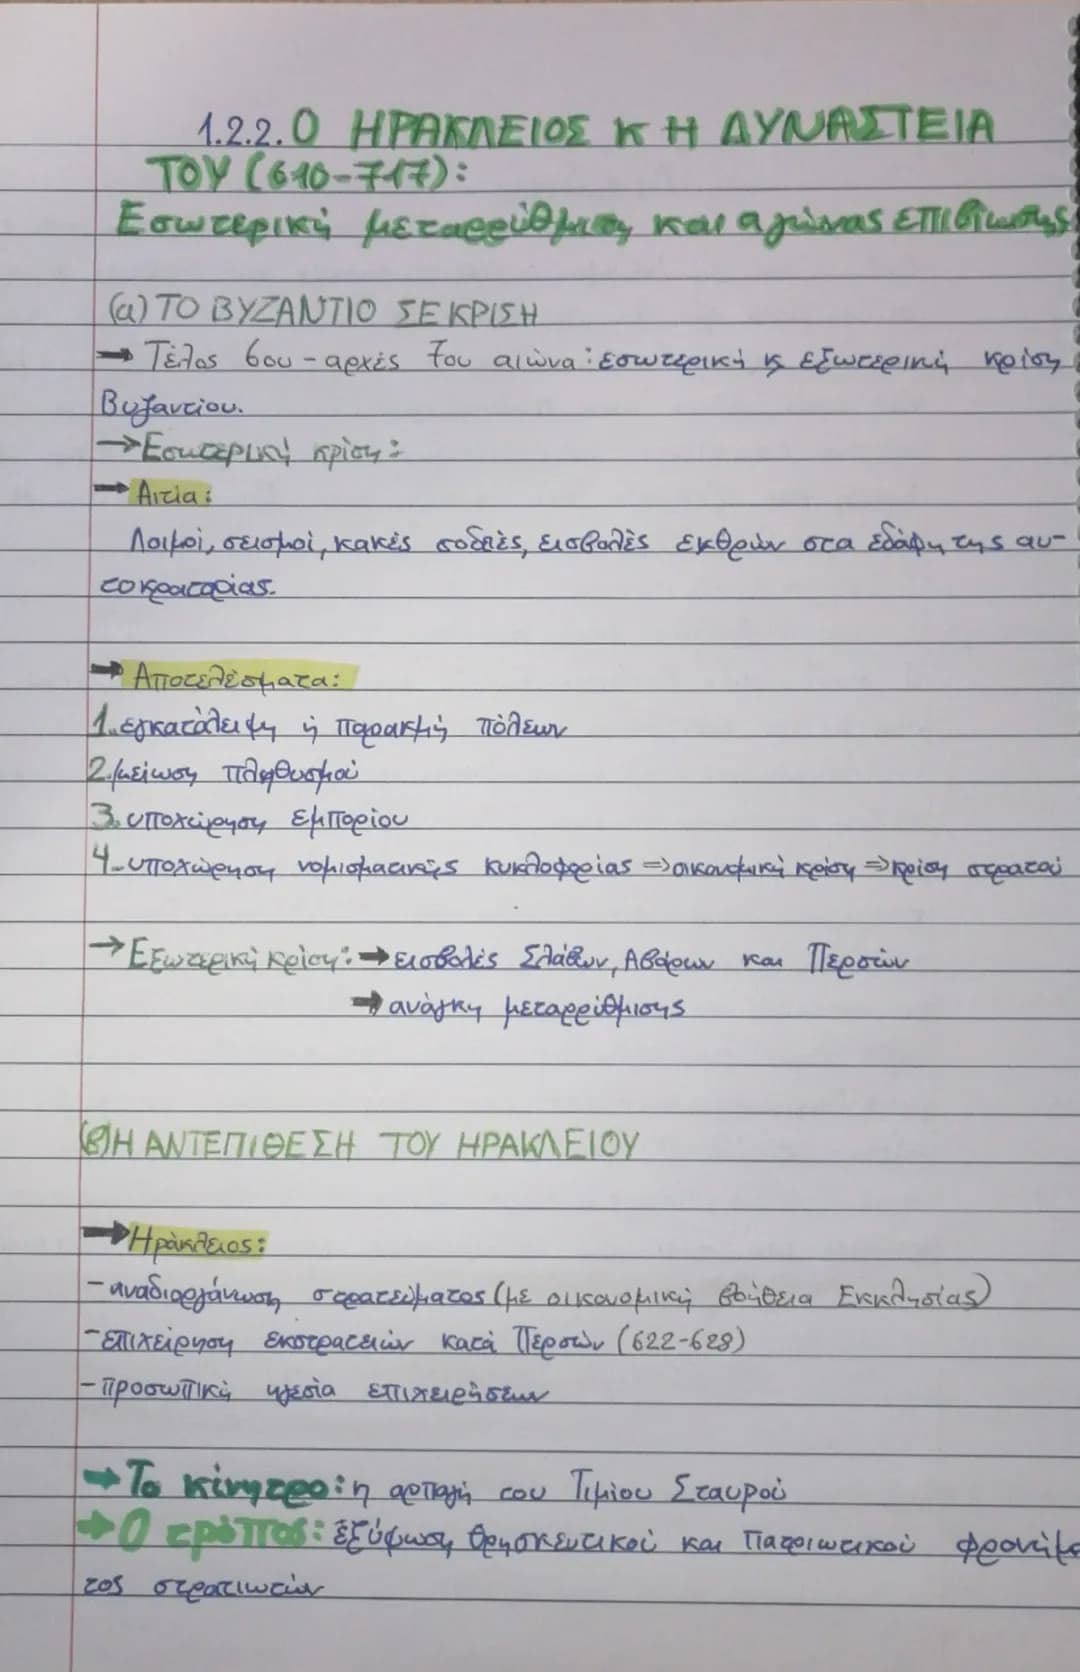 1.2.2. Ο ΗΡΑΚΛΕΙΟΣ Κ Η ΔΥΝΑΣΤΕΙΑ
ΤΟΥ (610-717):
Εσωτερική μεταρρύθμιση και αγώνας επιβίωσης
(α) ΤΟ ΒΥΖΑΝΤΙΟ ΣΕ ΚΡΙΣΗ
→ Τέλος 6ου - αρχές 7ου αιώνα: εσωτερική κ εξωτερική κρίση
Βυζαντίου.
→ Εσωτερική κρίση:
→ Αιτία:
Λοιμοί, σεισμοί, κακές σοδειές, εισβολές εχθρών στα εδάφη της αυ-
τοκρατορίας.
→ Αποτελέσματα:
1. εγκατάλειψη ή παρακμή πόλεων
2. μείωση πληθυσμού
3. υποχώρηση εμπορίου
4. υποχώρηση νομισματικής κυκλοφορίας ⇒ οικονομική κρίση ⇒ κρίση στρατού
→ Εξωτερική κρίση: → εισβολές Σλάβων, Αβάρων και Περσών
→ ανάγκη μεταρρύθμισης
(β) Η ΑΝΤΕΠΙΘΕΣΗ ΤΟΥ ΗΡΑΚΛΕΙΟΥ
→ Ηράκλειος:
- αναδιοργάνωση στρατεύματος (με οικονομική βοήθεια Εκκλησίας)
- επιχείρηση εκστρατειών κατά Περσών (622-628)
- προσωπική ηγεσία επιχειρήσεων
→ Το κίνητρο: η αρπαγή του Τιμίου Σταυρού
→ Ο τρόπος: εξύψωση θρησκευτικού και πατριωτικού φρονήμα
τος στρατιωτών